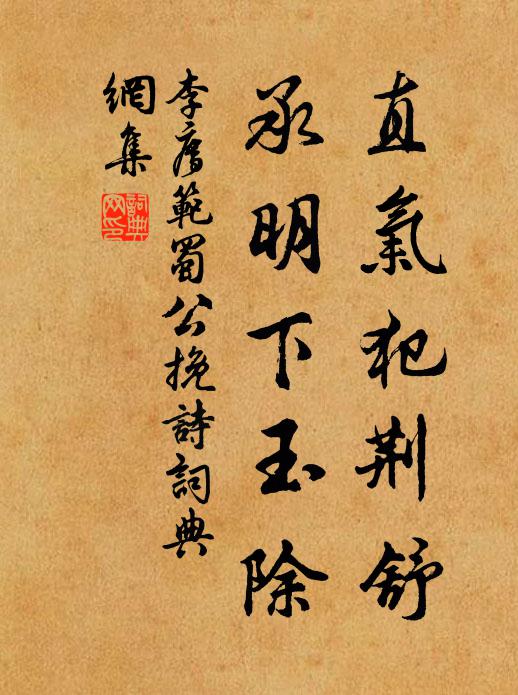 直氣犯荆舒
承明下玉除
李廌範蜀公挽詩詞典
網集
詞典
网印